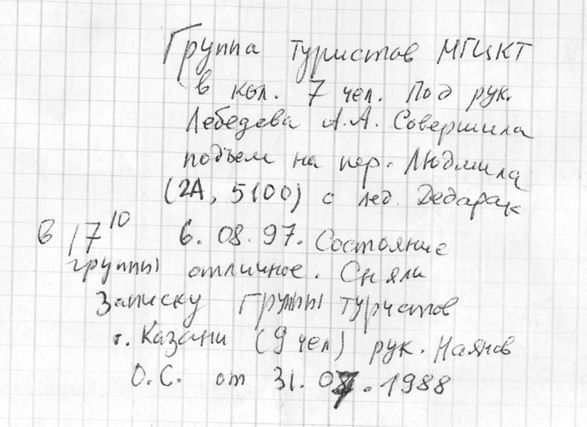 Группа туристов МГЦКТ
в кол. 7 чел. Под рук.
Лебедева А.А. Совершила
подъем на пер. Людмила
(2А, 5100) с лед. Дедарак
в 17¹⁰ 6.08.97. Состояние
группы отличное. Сняли
Записку группы туристов
г. Казани (9 чел) рук. Наянов
О.С. от 31.07.1988